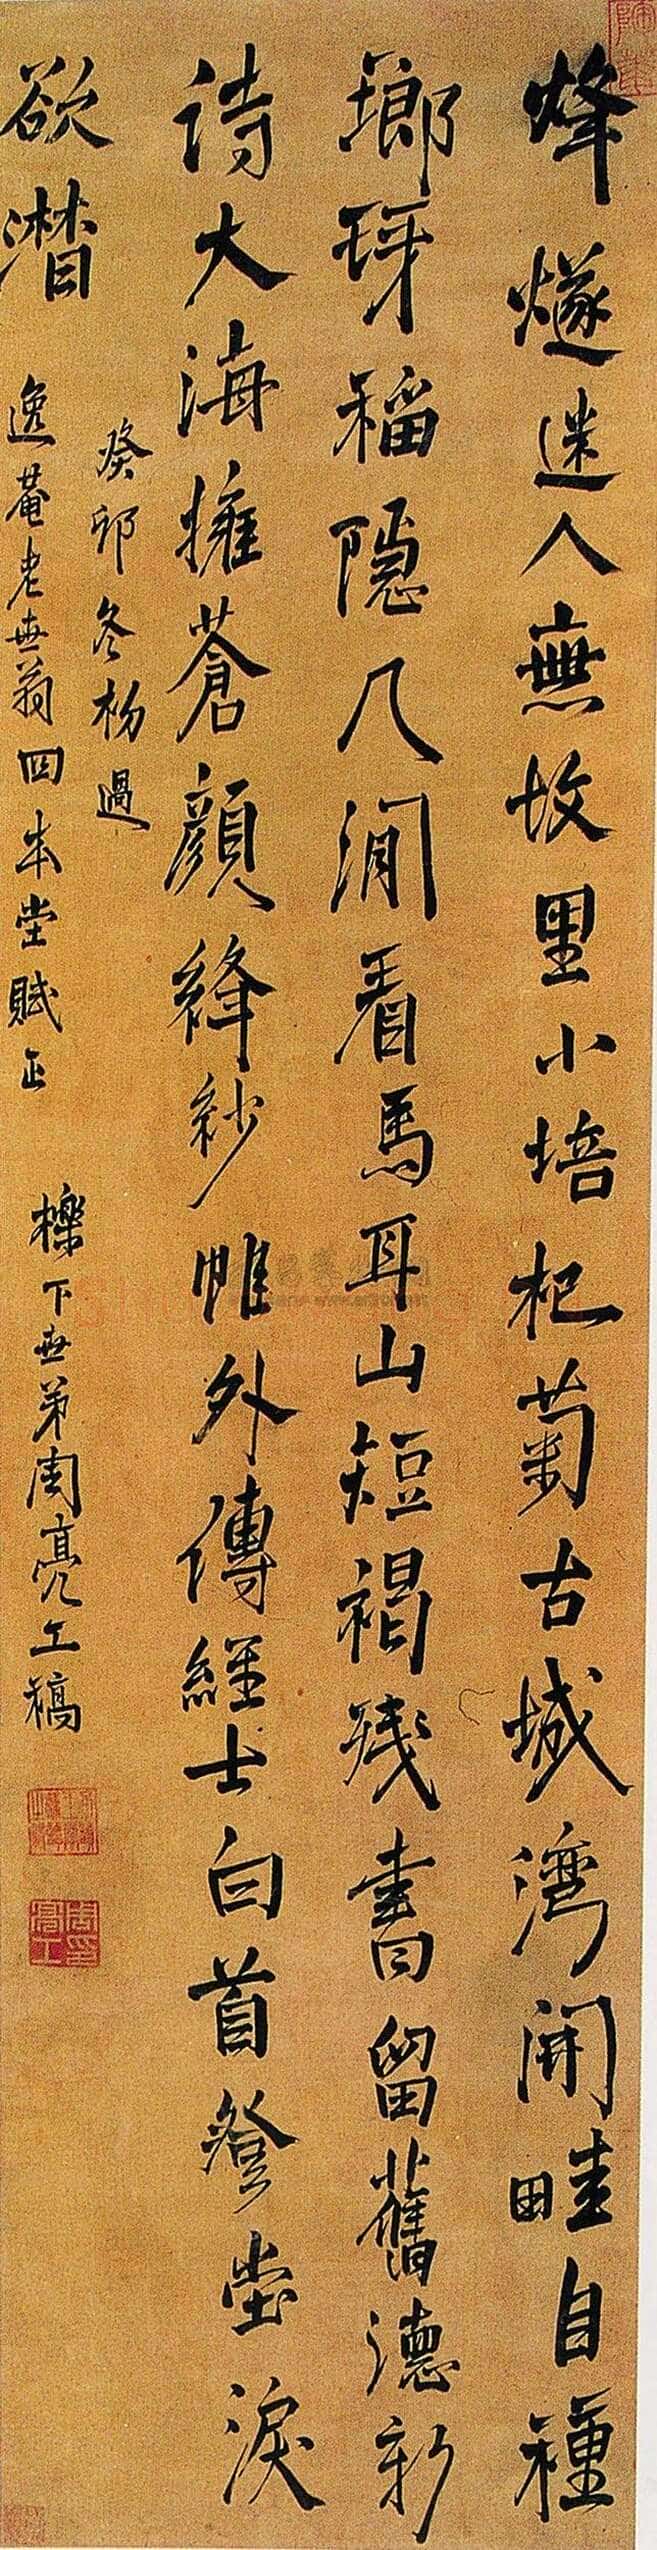 烽燧迷人無故里小培杞菊古城灣開畦自種
瑯琊稲隱几閒看馬耳山短褐殘書留舊德新
詩大海擁蒼顏絳紗帷外傳經士白首登堂淚
欲潸
癸卯冬杪過
逸菴老世翁四本堂賦正
櫟下世弟周亮工稿